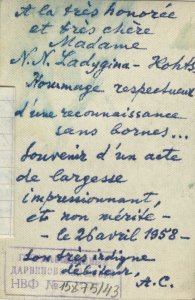 A la très honorée
et très chère
Madame
N.N. Ladygina-Kohts
Hommage respectueux
d'une reconnaissance
sans bornes...
Souvenir d'un acte
de largesse
impressionnant,
et non mérité -
- le 26 avril 1958 -
Son très indigne
débiteur, A.C.
ДАРВИНОВС
НВФ № 15875/43